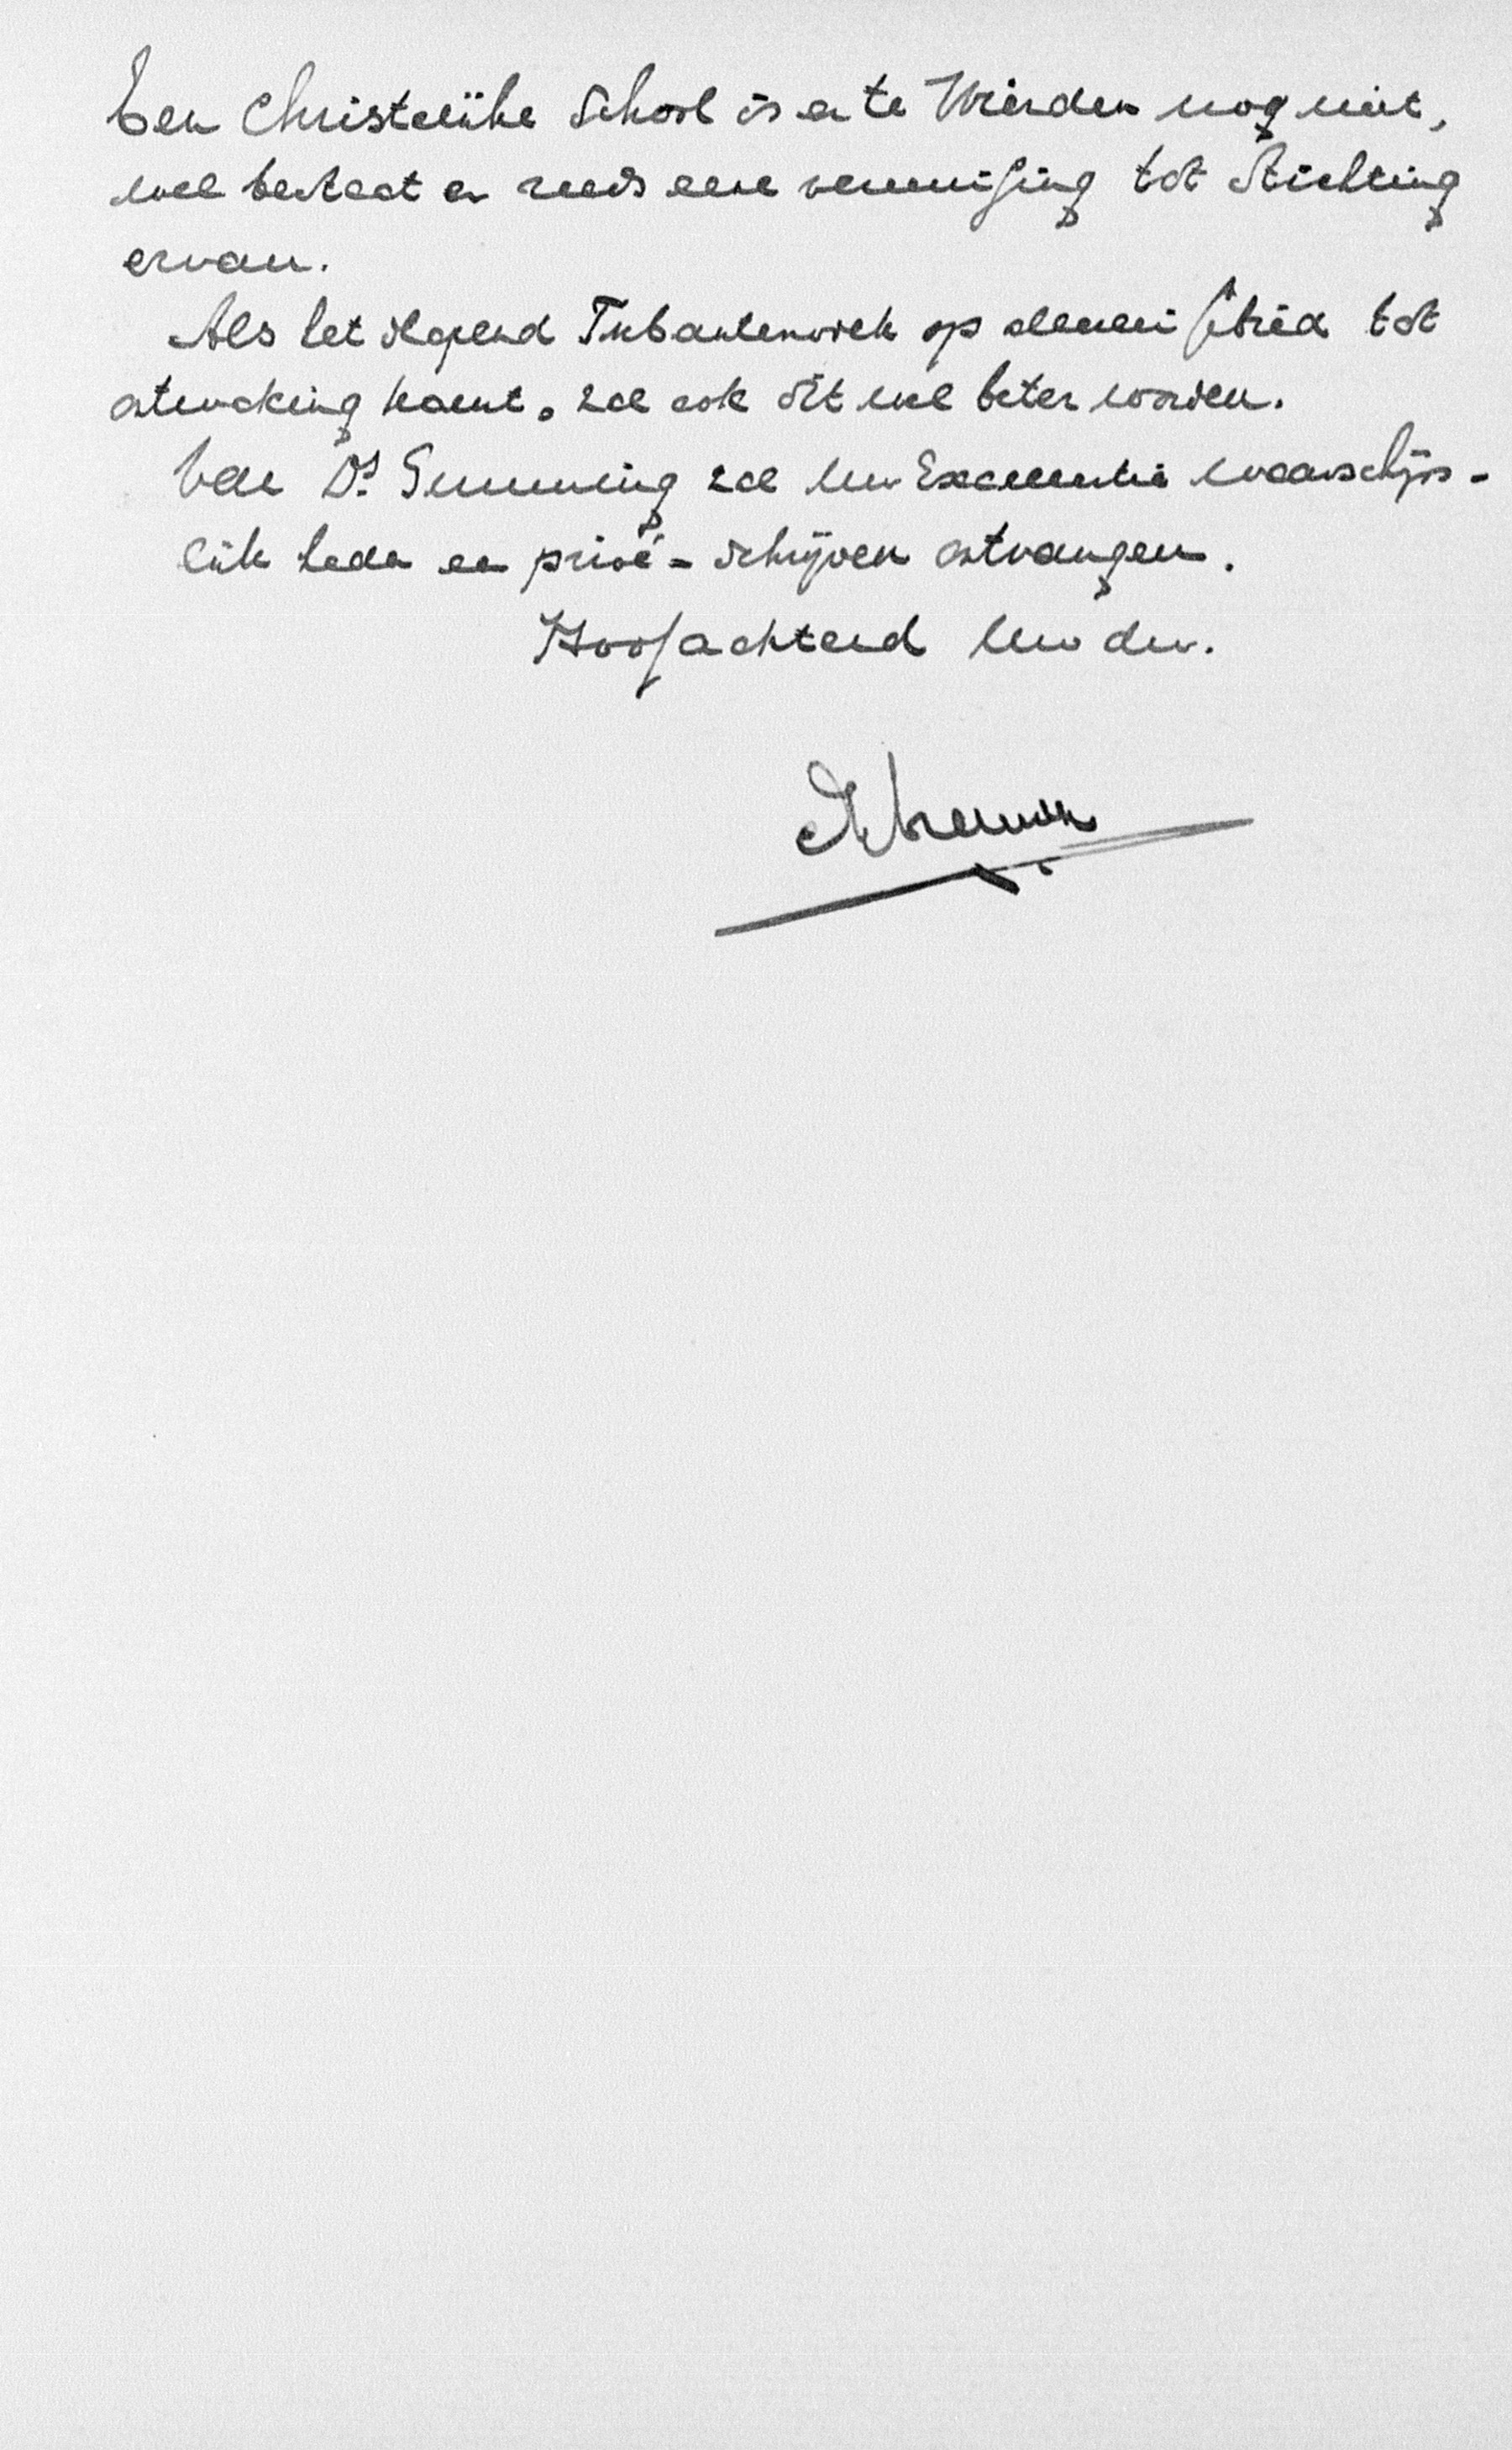 Een Christelijke School is er te Wierden nog niet,
wel bestaat er reeds eene vereeniging tot Stichting
ervan.
Als het slapend Tubantenvolk op allerlei gebied tot
ontwaking komt, zal ook dit wel beter worden.
Van Ds. Gunning zal Uw Excellentie waarschijn-
lijk heden een privé-schrijven ontvangen.
Hoogachtend Uw dw.